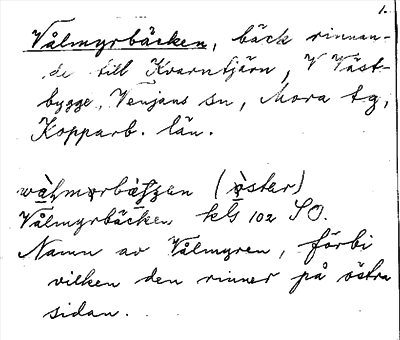 1.
Vålmyrbäcken, bäck rinnan-
de till Kvarntjärn, V Väst-
bygge, Venjans sn, Mora tg,
Kopparb. län.
(öster)
Vålmyrbäcken kls 102 SO.
Namn av Vålmyren, förbi
vilken den rinner på östra
sidan.